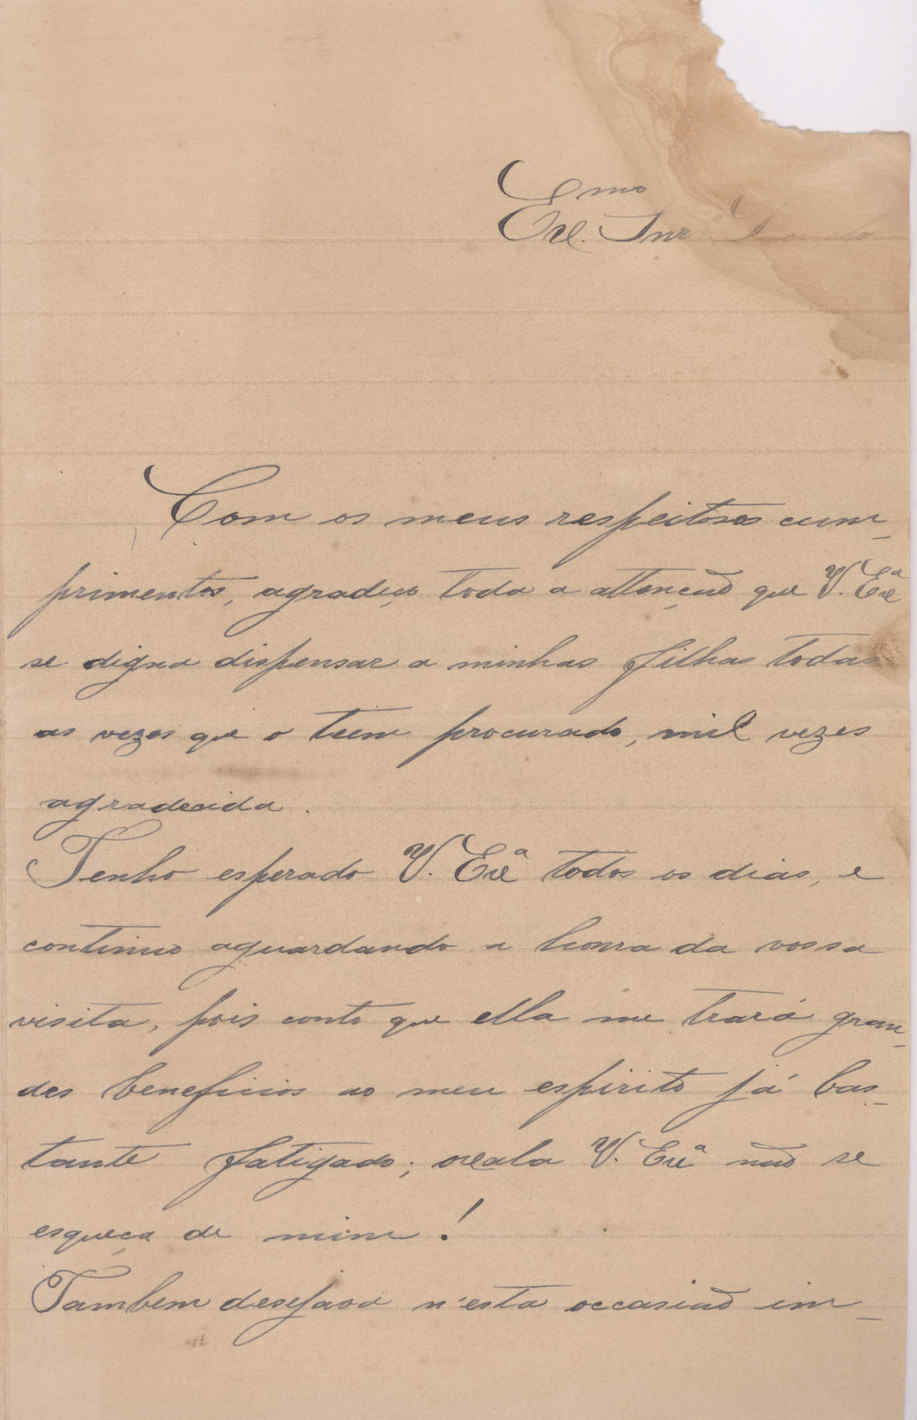 Exmo Snr
Com os meus respeitosos cum-
primentos, agradeço toda a attenção que V. Exª
se digna dispensar a minhas filhas todas
as vezes que o teem procurado, mil vezes
agradecida.
Tenho esperado V. Exª todos os dias, e
continuo aguardando a honra da vossa
visita, pois conto que ella me trará gran-
des beneficios ao meu espirito já bas-
tante fatigado; oxala V. Exª não se
esqueça de mim!
Tambem desejava n'esta occasião im-